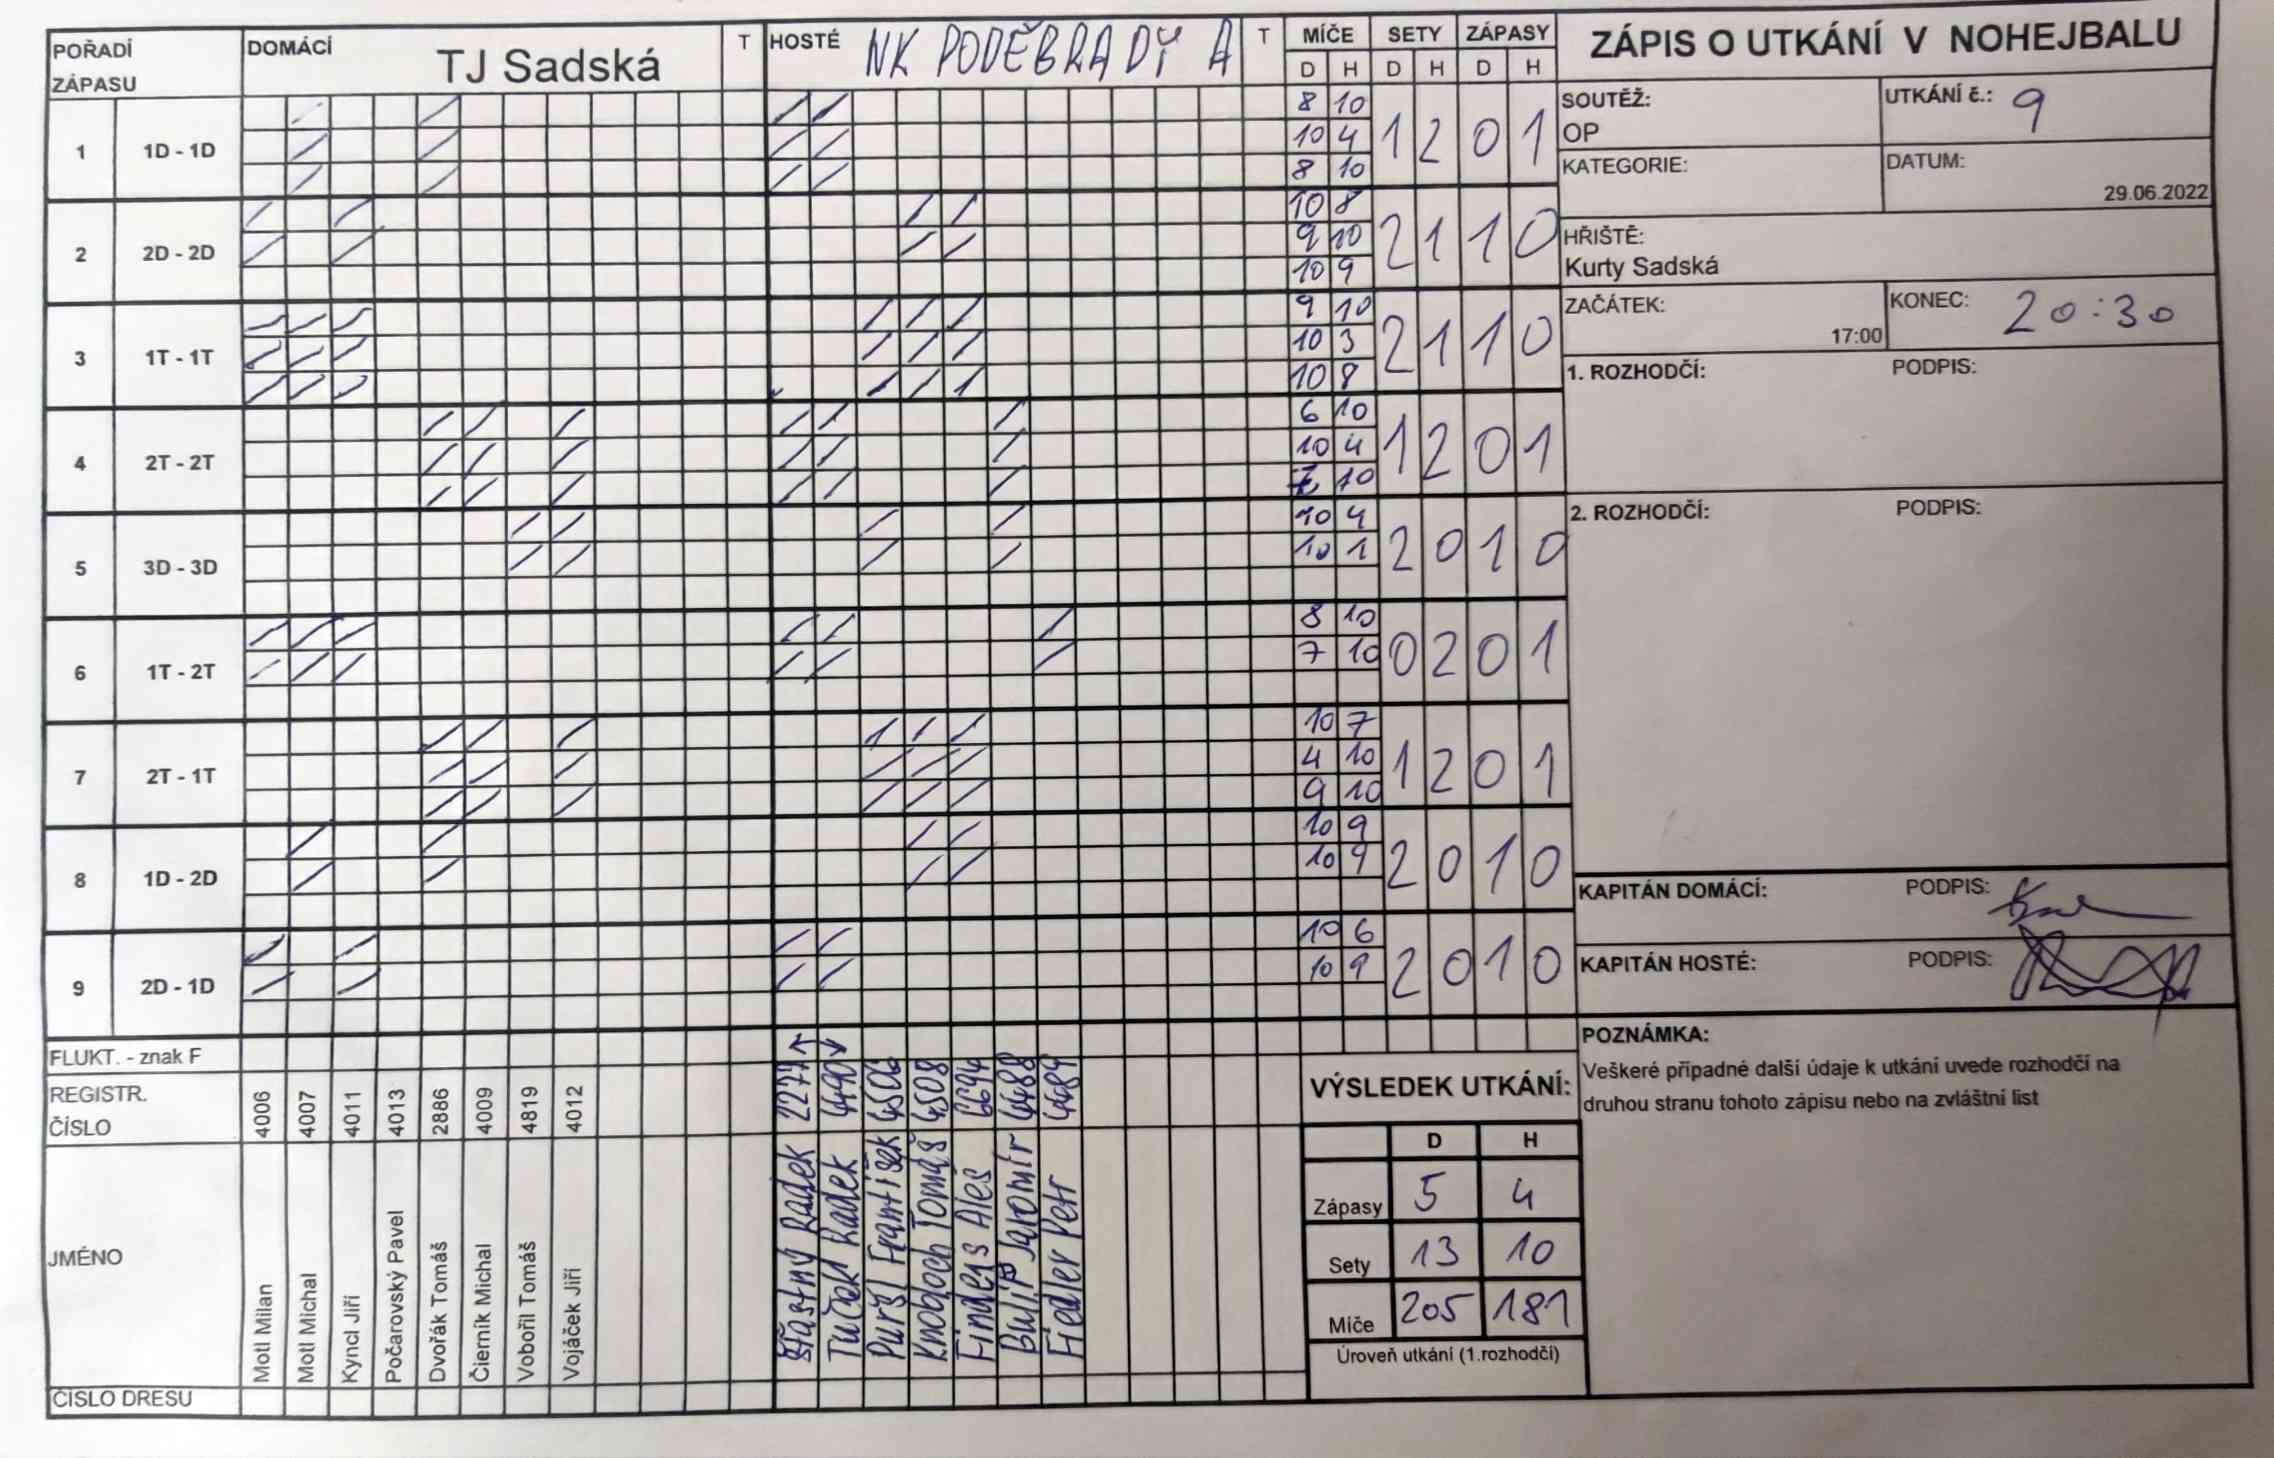 POŘADÍ ZÁPASU DOMÁCÍ TJ Sadská T HOSTÉ NK PODĚBRADY A T MÍČE SETY ZÁPASY
D H D H D H
1 1D - 1D 8 10 1 2 0 1
10 4
8 10
2 2D - 2D 10 8 2 1 1 0
9 10
10 9
3 1T - 1T 9 10 2 1 1 0
10 3
10 8
4 2T - 2T 6 10 1 2 0 1
10 4
7 10
5 3D - 3D 10 4 2 0 1 0
10 1
6 1T - 2T 8 10 0 2 0 1
7 10
7 2T - 1T 10 7 1 2 0 1
4 10
9 10
8 1D - 2D 10 9 2 0 1 0
10 9
9 2D - 1D 10 6 2 0 1 0
10 9
FLUKT. - znak F
REGISTR. ČÍSLO 4006 4007 4011 4013 2886 4009 4819 4012 4490 4506 4508 6694 4488 4489
JMÉNO
Motl Milan
Motl Michal
Kyncl Jiří
Počarovský Pavel
Dvořák Tomáš
Čierník Michal
Vobořil Tomáš
Vojáček Jiří
Šťastný Radek
Tuček Radek
Puršl František
Knobloch Tomáš
Findejs Aleš
Bulíř Jaromír
Fiedler Petr
ČÍSLO DRESU
ZÁPIS O UTKÁNÍ V NOHEJBALU
SOUTĚŽ: OP
UTKÁNÍ č.: 9
KATEGORIE:
DATUM: 29.06.2022
HŘIŠTĚ:
Kurty Sadská
ZAČÁTEK: 17:00
KONEC: 20:30
1. ROZHODČÍ: PODPIS:
2. ROZHODČÍ: PODPIS:
KAPITÁN DOMÁCÍ: PODPIS:
KAPITÁN HOSTÉ: PODPIS:
POZNÁMKA:
Veškeré případné další údaje k utkání uvede rozhodčí na
druhou stranu tohoto zápisu nebo na zvláštní list
VÝSLEDEK UTKÁNÍ:
D H
Zápasy 5 4
Sety 13 10
Míče 205 181
Úroveň utkání (1.rozhodčí)